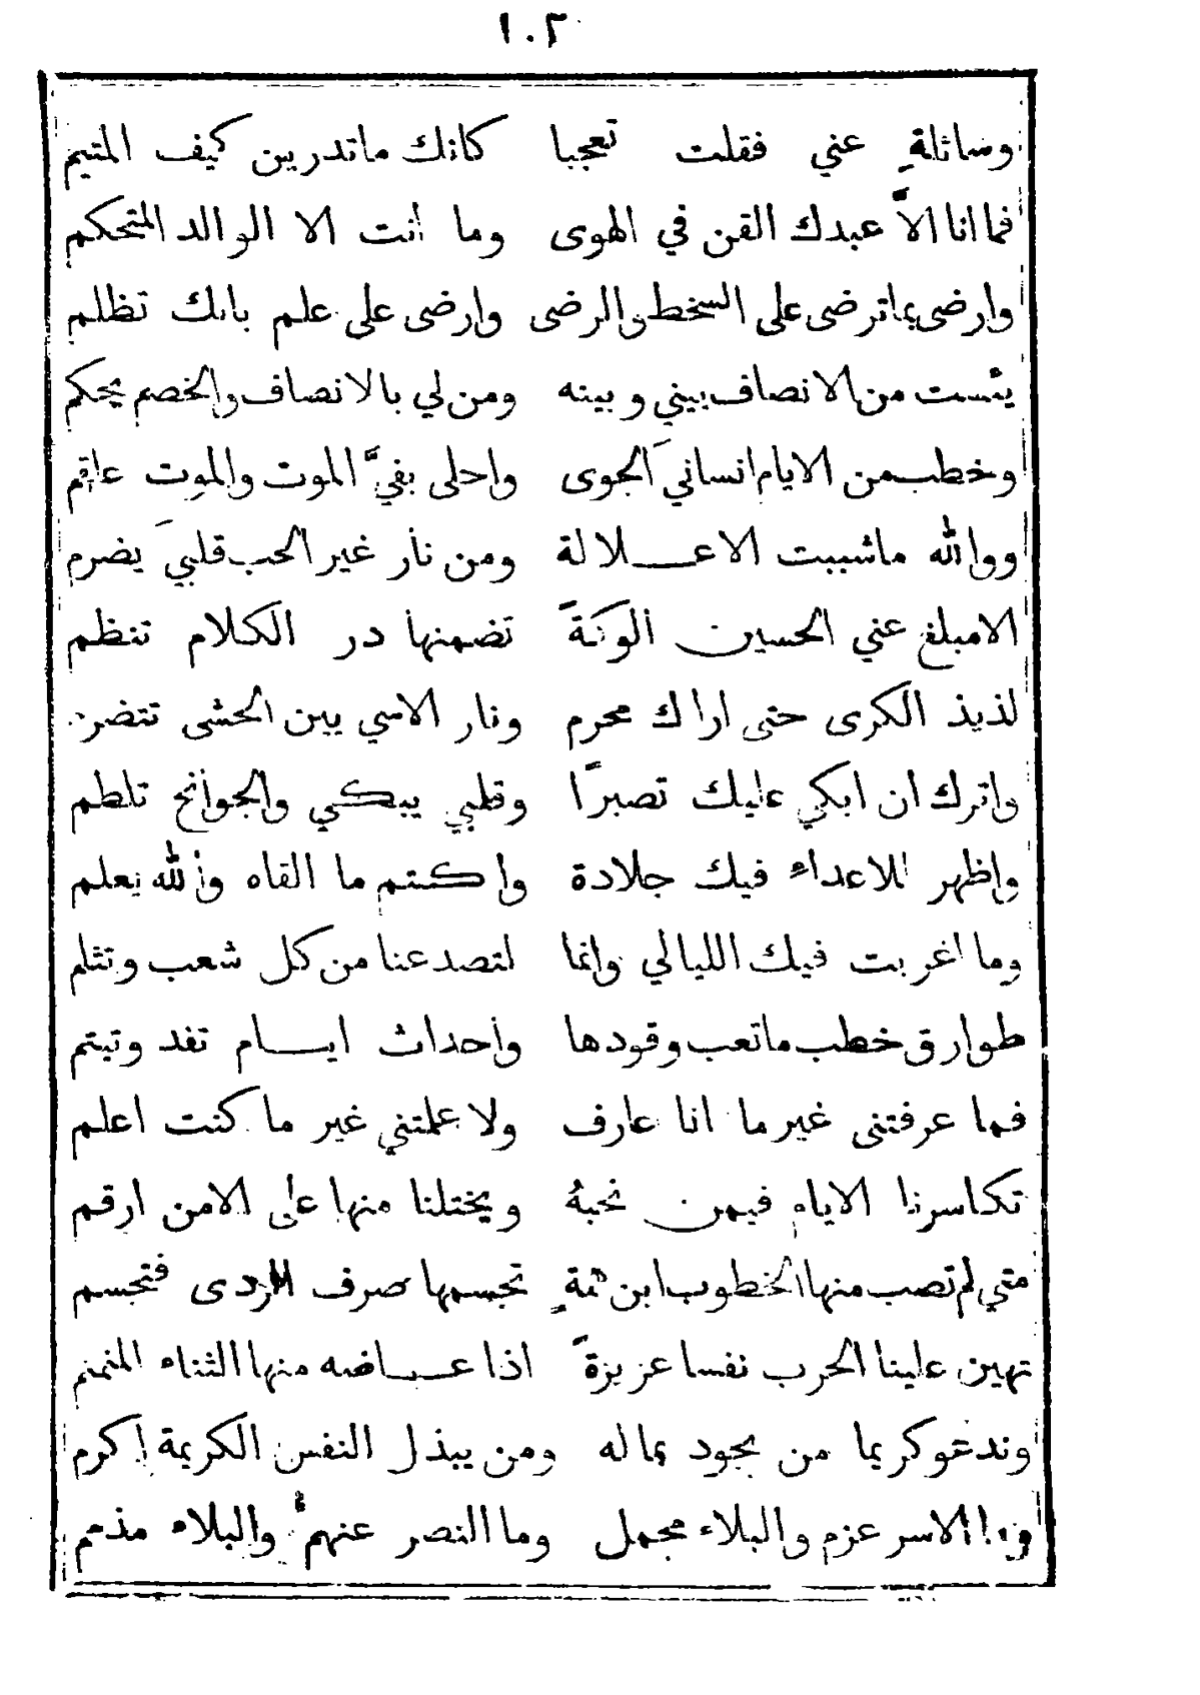 ١٠٢
وسائلةٍ عني فقلت تعجبا كانك ماتدرين كيف المتيم
فما انا الاَّ عبدك القن في الهوى وما أنت الا الوالد المتحكم
وارضى بماترضى على السخط والرضى وارضى على علم بانك تظلم
يئست من الانصاف بيني وبينه ومن لي بالانصاف والخصم يحكم
وخطب من الايام انسانيَ الجوى واحلى بفيَّ الموت والموت علقم
ووالله ماشببت الا عـــلالة ومن نار غير الحب قلبيَ يضرم
الامبلغ عني الحسين الوكةً تضمنها در الكلام تنظم
لذيذ الكرى حتى اراك محرم ونار الاسي بين الحشى تتضر
واترك ان ابكي عليك تصبرًا وقلبي يبكي والجوانح تلطم
واظهر للاعداء فيك جلادة واكتم ما القاه والله يعلم
وما اغربت فيك الليالي وانما لتصدعنا من كل شعب وتثلم
طوارق خطب ماتعب وقودها وأحداث ايـــام تفد وتيتم
فما عرفتنى غير ما انا عارف ولا علمتني غير ما كنت اعلم
تكاسرنا الايام فيمن نحبهُ ويختلنا منها على الامن ارقم
متي لم تصب منها الخطوب ابن ثمةٍ تجسمها صرف الردى فتجسم
تهين علينا الحرب نفسا عزيزةً اذا عـــاضه منها الثناء المنمنم
وندعو كريما من يجود بماله ومن يبذل النفس الكريمة اكرم
الاسر عزم والبلاء مجمل وما النصر عنهمُ والبلاء مذمم